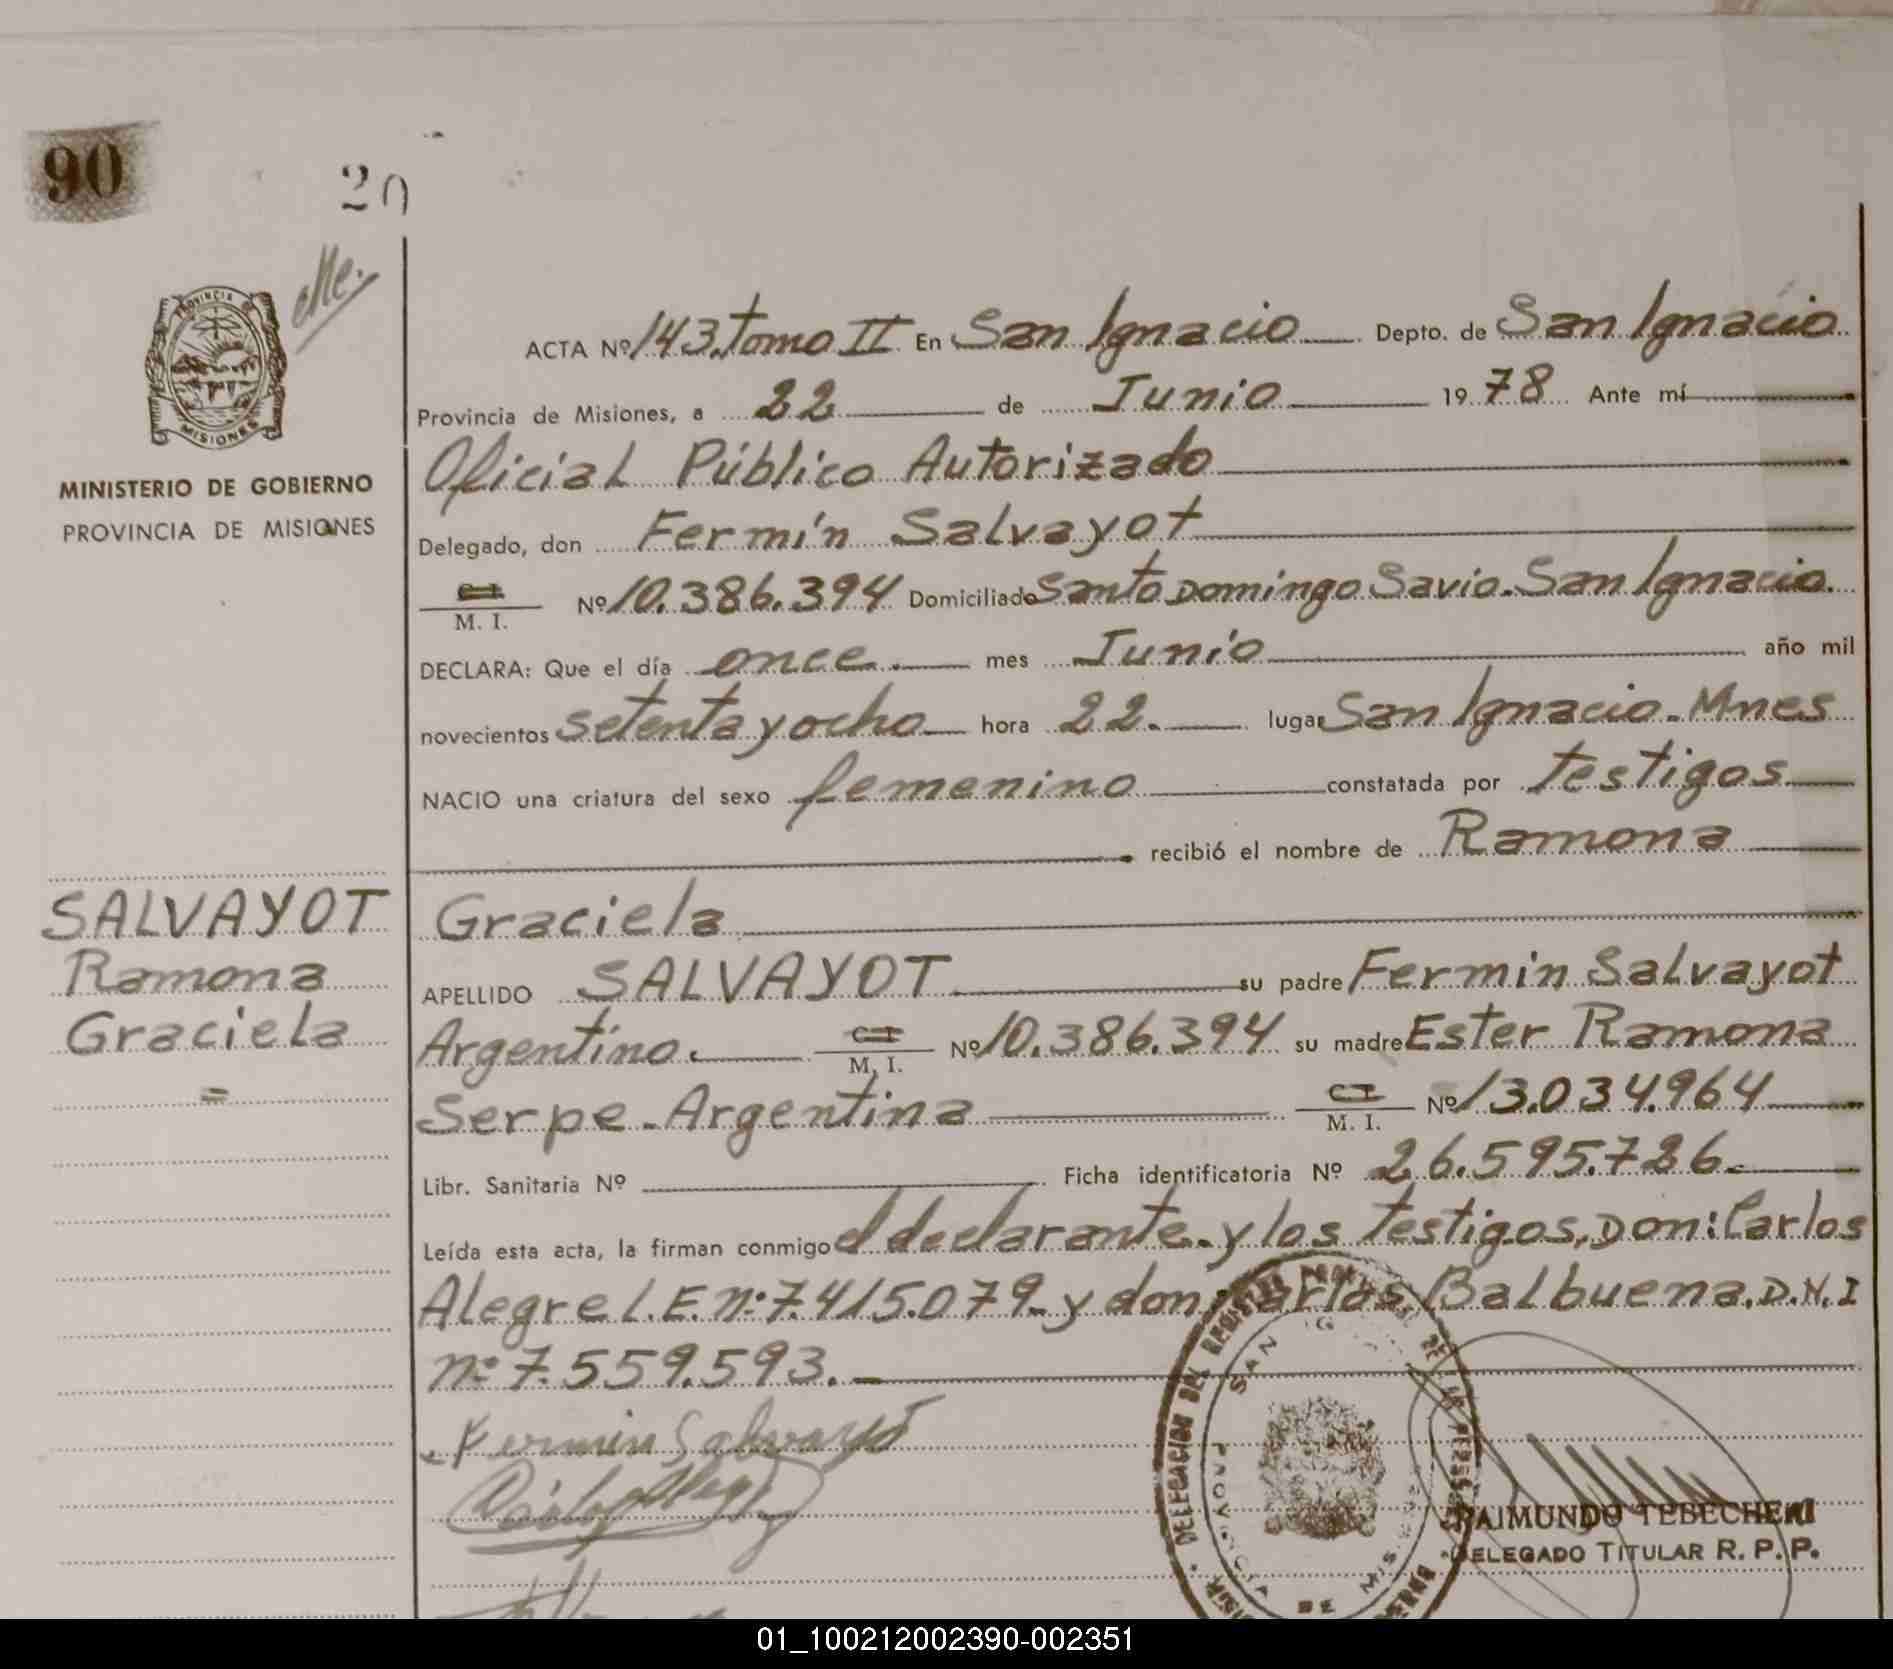 90
20
PROVINCIA DE
MISIONES
MINISTERIO DE GOBIERNO
PROVINCIA DE MISIONES
ACTA Nº 143. tomo II En San Ignacio Depto. de San Ignacio
Provincia de Misiones, a 22 de Junio 1978 Ante mí
Oficial Público Autorizado
Delegado, don Fermín Salvayot
C I
M. I. Nº 10.386.394 Domiciliado Santo Domingo Savio. San Ignacio.
DECLARA: Que el día once mes Junio año mil
novecientos setenta y ocho hora 22. lugar San Ignacio. Mnes
NACIO una criatura del sexo femenino constatada por testigos
recibió el nombre de Ramona
SALVAYOT Graciela
Ramona
Graciela
=
APELLIDO SALVAYOT su padre Fermin Salvayot
Argentino. C I
M. I. Nº 10.386.394 su madre Ester Ramona
Serpe. Argentina C I
M. I. Nº 13.034.964
Libr. Sanitaria Nº Ficha identificatoria Nº 26.595.726.
Leída esta acta, la firman conmigo el declarante. y los testigos, Don: Carlos
Alegre L.E. nº: 7.415.079. y don: Carlos Balbuena. D.N.I
nº: 7.559.593.
Fermin Salvayot
DELEGACION DEL REGISTRO PROVINCIAL DE LAS PERSONAS
SAN
PROVINCIA DE MIS
RAIMUNDO TEBECHERI
DELEGADO TITULAR R. P. P.
01_100212002390-002351